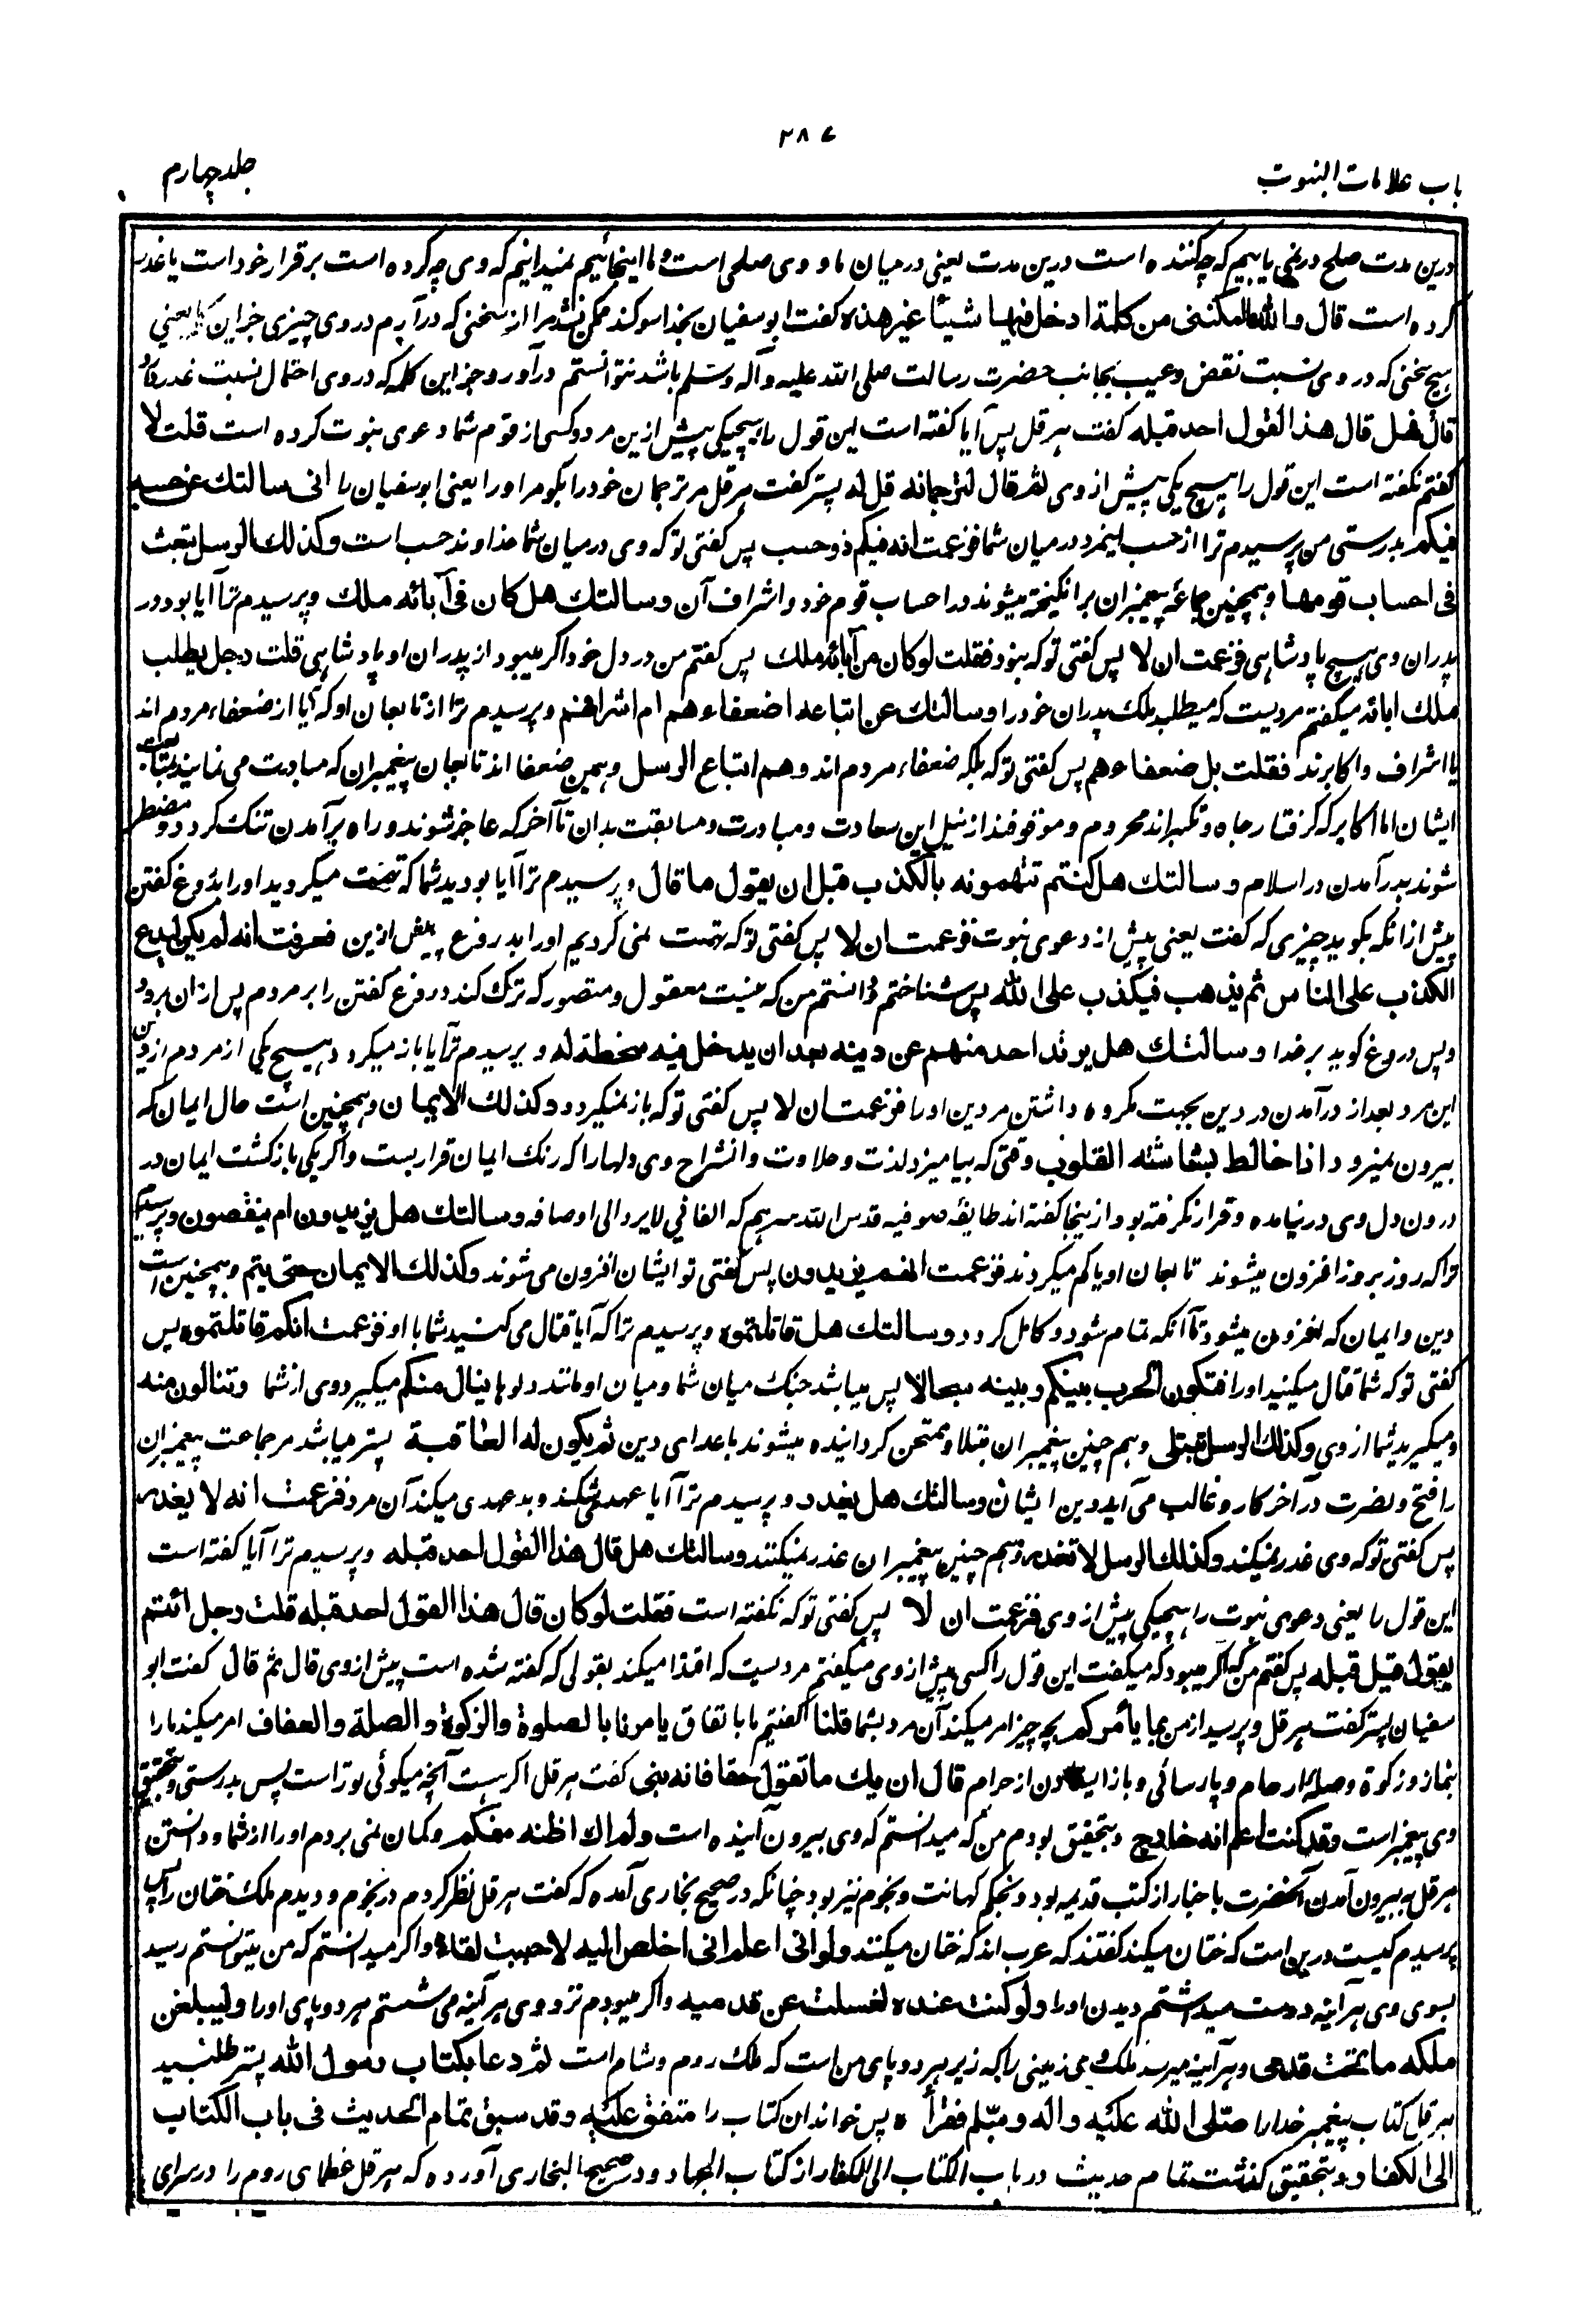 ۲۸۷
باب علامات النبوت
جلد چهارم
درین مدت صلح در نمی یابیم که چه کننده است درین مدت یعنی درمیان ما و وی صلحی است و ما اینجائیم نمیدانیم که وی چه کرده است بر قرار خود است یا غدر
کرده است قال والله ما امکننی من کلمة ادخل فیها شیئا غیر هذه گفت ابو سفیان بخدا سوگند ممکن نشد مرا از سخنی که در آرم در وی چیزی جز این کلمه یعنی
هیچ سخنی که در وی نسبت نقض و عیب بجانب حضرت رسالت صلی الله علیه وآله وسلم باشد نتوانستم درآورد جز این کلمه که در وی احتمال نسبت غدر
قال فهل قال هذا القول احد قبله گفت هرقل پس آیا گفته است این قول را هیچیکی پیش ازین مرد و کسی از قوم شما دعوی نبوت کرده است قلت لا
گفتم نگفته است این قول را هیچ یکی پیش از وی ثم قال لترجمانه قل له پستر گفت هرقل مر ترجمان خود را بگو مر او را یعنی ابوسفیان را انی سالتك عن حسبه
فیکم بدرستی من پرسیدم ترا از حسب اینمرد درمیان شما فزعمت انه فیکم ذو حسب پس گفتی تو که وی درمیان شما خداوند حسب است وکذلك الرسل تبعث
فی احساب قومها و همچنین جماعهٔ پیغمبران برانگیخته میشوند در احساب قوم خود و اشراف آن وسالتك هل کان فی آبائه ملك و پرسیدم ترا آیا بود در
پدران وی هیچ پادشاهی فزعمت ان لا پس گفتی تو که نبود فقلت لوکان من آبائه ملك پس گفتم من در دل خود اگر میبود از پدران او پادشاهی قلت رجل یطلب
ملك ابائه میگفتم مردیست که میطلبد ملك پدران خود را وسالتك عن اتباعه اضعفاءهم ام اشرافهم و پرسیدم ترا از تابعان او که آیا از ضعفاء مردم اند
یا اشراف و اکابرند فقلت بل ضعفاءهم پس گفتی تو که بلکه ضعفاء مردم اند وهم اتباع الرسل و همین ضعفا اند تابعان پیغمبران که مبادرت می نمایند بمتابعت
ایشان اما اکابر که گرفتار جاه و تکبر اند محروم و موقوفند از نیل این سعادت و مبادرت و مسابقت بدان تا آخر که عاجز شوند و راه برآمدن تنگ گردد و مضطر
شوند بدرآمدن در اسلام وسالتك هل کنتم تتهمونه بالکذب قبل ان یقول ما قال و پرسیدم ترا آیا بودید شما که تهمت میکردید او را بدروغ گفتن
پیش از انکه بگوید چیزی که گفت یعنی پیش از دعوی نبوت فزعمت ان لا پس گفتی تو که تهمت نمی کردیم او را بدروغ پیش ازین فعرفت انه لم یکن لیدع
الکذب علی الناس ثم یذهب فیکذب علی الله پس شناختم و دانستم من که نیست معقول و متصور که ترک کند دروغ گفتن را بر مردم پس ازان برود
و پس دروغ گوید بر خدا وسالتك هل یرتد احد منهم عن دینه بعد ان یدخل فیه سخطة له و پرسیدم ترا آیا باز میگردد هیچ یکی از مردم از دین
این مرد بعد از درآمدن در دین بجهت مکروه داشتن مر دین او را فزعمت ان لا پس گفتی تو که باز نمیگردد وکذلك الایمان و همچنین است حال ایمان که
بیرون نمیرود اذا خالط بشاشته القلوب وقتی که بیامیزد لذت و حلاوت و انشراح وی دلها را که رنگ ایمان قرار بست و اگر یکی بازگشت ایمان در
درون دل وی درنیامده و قرار نگرفته بود ازینجا گفته اند طایفهٔ صوفیه قدس الله سرهم که الفانی لا یرد الی اوصافه وسالتك هل یزیدون ام ینقصون و پرسیدم
ترا که روز بروز افزون میشوند تابعان او یا کم میگردند فزعمت انهم یزیدون پس گفتی تو ایشان افزون می شوند وکذلك الایمان حتی یتم و همچنین است
دین و ایمان که افزون میشود تا آنکه تمام شود و کامل گردد وسالتك هل قاتلتموه و پرسیدم ترا که آیا قتال می کنید شما با او فزعمت انکم قاتلتموه پس
گفتی تو که شما قتال میکنید او را فتکون الحرب بینکم وبینه سجالا پس میباشد جنگ میان شما و میان او مانند دلوها ینال منکم میگیرد وی از شما وتنالون منه
و میگیرید شما از وی وکذلك الرسل تبتلی و هم چنین پیغمبران مبتلا و ممتحن گردانیده میشوند باعدای دین ثم یکون له العاقبة پستر میباشد مر جماعت پیغمبران
را فتح و نصرت در آخر کار و غالب می آید دین ایشان وسالتك هل یغدر و پرسیدم ترا آیا عهد میشکند و بدعهدی میکند آن مرد فزعمت انه لا یغدر
پس گفتی تو که وی غدر نمیکند وکذلك الرسل لا تغدر و هم چنین پیغمبران غدر نمیکنند وسالتك هل قال هذا القول احد قبله و پرسیدم ترا آیا گفته است
این قول را یعنی دعوی نبوت را هیچیکی پیش از وی فزعمت ان لا پس گفتی تو که نگفته است فقلت لوکان قال هذا القول احد قبله قلت رجل ائتم
بقول قیل قبله پس گفتم من که اگر میبود که میگفت این قول را کسی پیش از وی میگفتم مردیست که اقتدا میکند بقولی که گفته شده است پیش از وی قال ثم قال گفت ابو
سفیان پستر گفت هرقل و پرسید از من بما یأمرکم بچه چیز امر میکند آن مرد بشما قلنا گفتیم ما باتفاق یامرنا بالصلوة والزکوة والصلة والعفاف امر میکند ما را
بنماز و زکوة و صلهٔ ارحام و پارسائی و باز ایستادن از حرام قال ان یك ما تقول حقا فانه نبی گفت هرقل اگر هست آنچه میگوئی تو راست پس بدرستی و تحقیق
وی پیغمبر است وقد کنت اعلم انه خارج و بتحقیق بودم من که میدانستم که وی بیرون آینده است ولم اك اظنه منکم و گمان نمی بردم او را از شما و دانستن
هرقل به بیرون آمدن آنحضرت باخبار از کتب قدیمه بود و بحکم کهانت و نجوم نیز بود چنانکه در صحیح بخاری آمده که گفت هرقل نظر کردم در نجوم و دیدم ملك ختان را پس
پرسیدم کیست درین است که ختان میکند گفتند که عرب اند که ختان میکنند ولو انی اعلم انی اخلص الیه لاحببت لقاءه و اگر میدانستم که من میتوانستم رسید
بسوی وی هر آینه دوست میداشتم دیدن او را ولوکنت عنده لغسلت عن قدمیه و اگر میبودم نزد وی هر آینه می شستم هر دو پای او را ولیبلغن
ملکه ما تحت قدمی و هر آینه میرسد ملك وی زمینی را که زیر هر دو پای من است که ملك روم و شام است ثم دعا بکتاب رسول الله پستر طلبید
هرقل کتاب پیغمبر خدا را صلی الله علیه واله وسلم فقرأه پس خواند ان کتاب را متفق علیه وقد سبق تمام الحدیث فی باب الکتاب
الی الکفار و بتحقیق گذشت تمام حدیث در باب الکتاب الی الکفار از کتاب الجهاد و در صحیح البخاری آورده که هرقل عظمای روم را در سرای